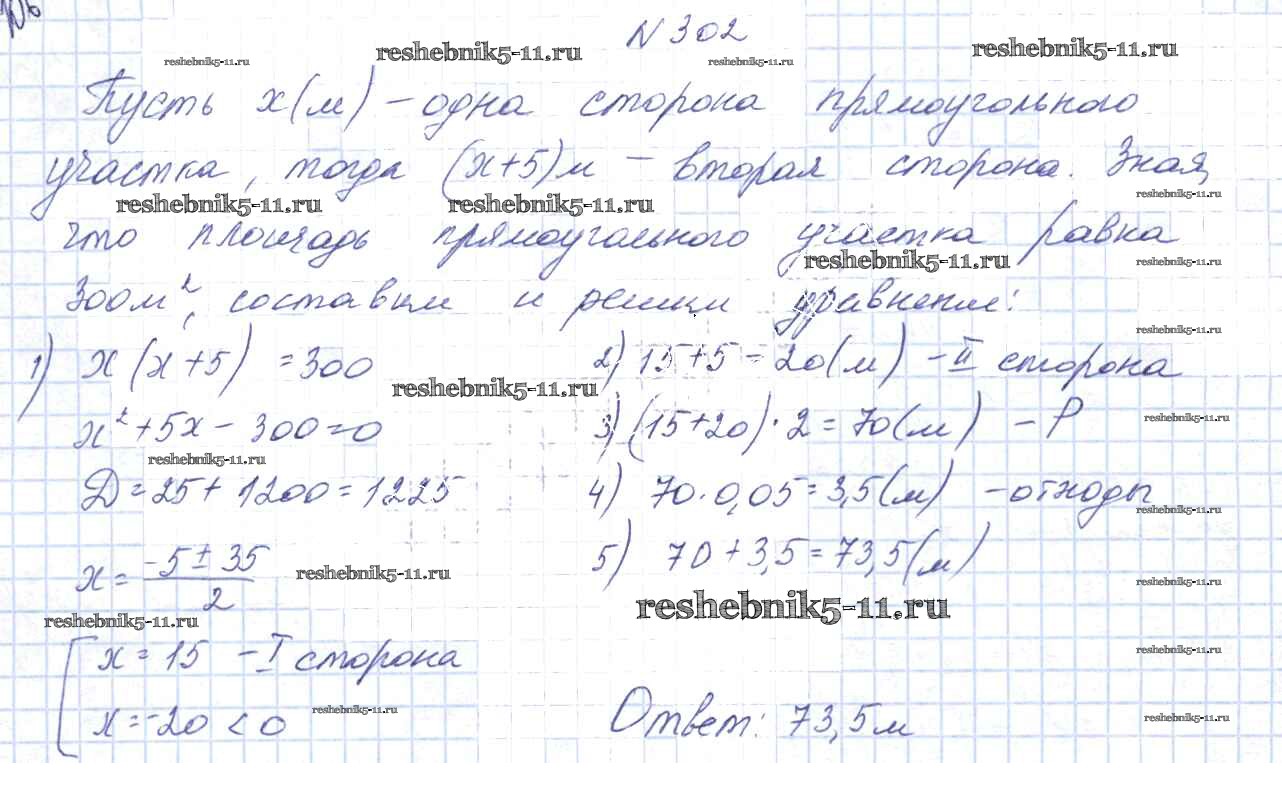 N 302
reshebnik5-11.ru reshebnik5-11.ru reshebnik5-11.ru reshebnik5-11.ru
Пусть x(м) – одна сторона прямоугольного
участка, тогда (x+5)м – вторая сторона. Зная,
reshebnik5-11.ru reshebnik5-11.ru reshebnik5-11.ru
что площадь прямоугольного участка равна
reshebnik5-11.ru reshebnik5-11.ru
300м², составим и решим уравнение:
reshebnik5-11.ru
1) x(x+5) = 300
reshebnik5-11.ru
x² + 5x - 300 = 0
reshebnik5-11.ru
Д = 25 + 1200 = 1225
x = (-5 ± 35)/2
reshebnik5-11.ru
reshebnik5-11.ru
x = 15 – I сторона
x = -20 < 0
reshebnik5-11.ru
2) 15 + 5 = 20(м) – II сторона
3) (15+20)·2 = 70(м) – P
reshebnik5-11.ru
4) 70·0,05 = 3,5(м) – отходы
reshebnik5-11.ru
5) 70 + 3,5 = 73,5(м)
reshebnik5-11.ru
reshebnik5-11.ru
reshebnik5-11.ru
Ответ: 73,5м
reshebnik5-11.ru